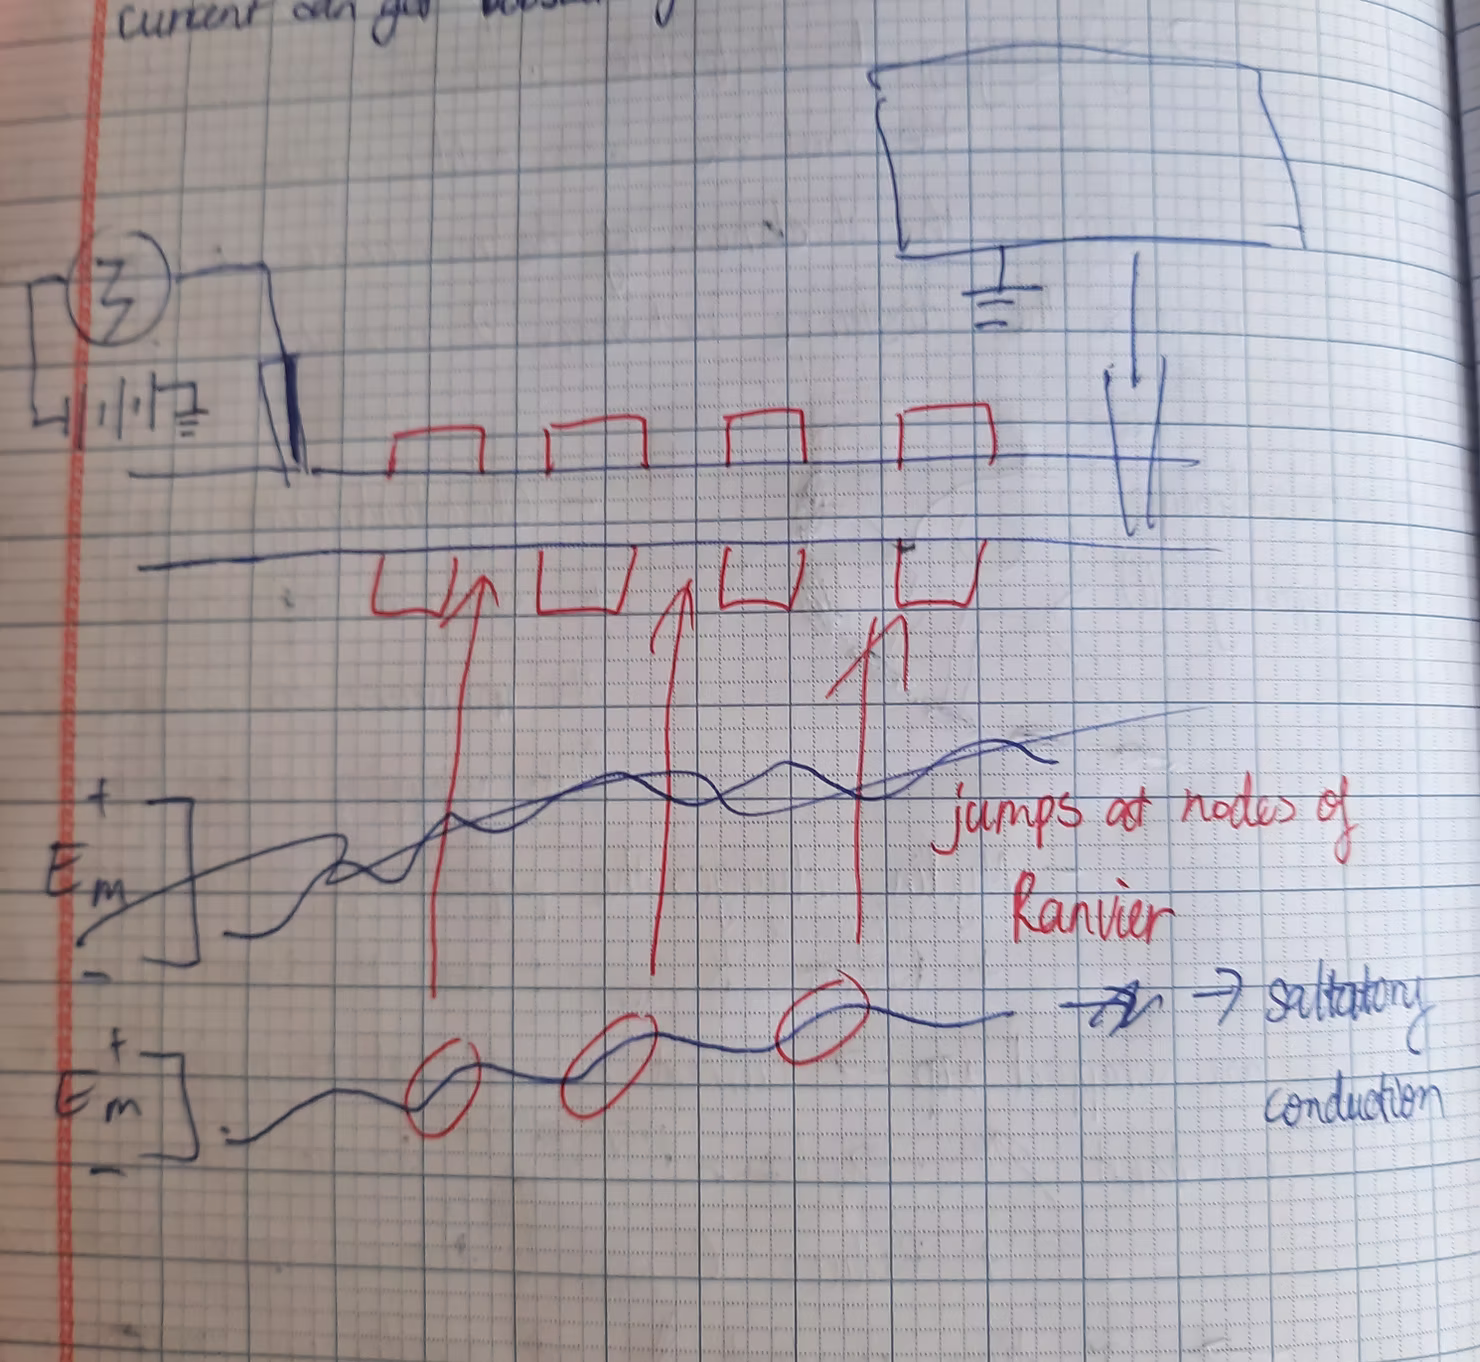 current can get
+
Em
-
jumps at nodes of
Ranvier
+
Em
-
→ saltatory
conduction